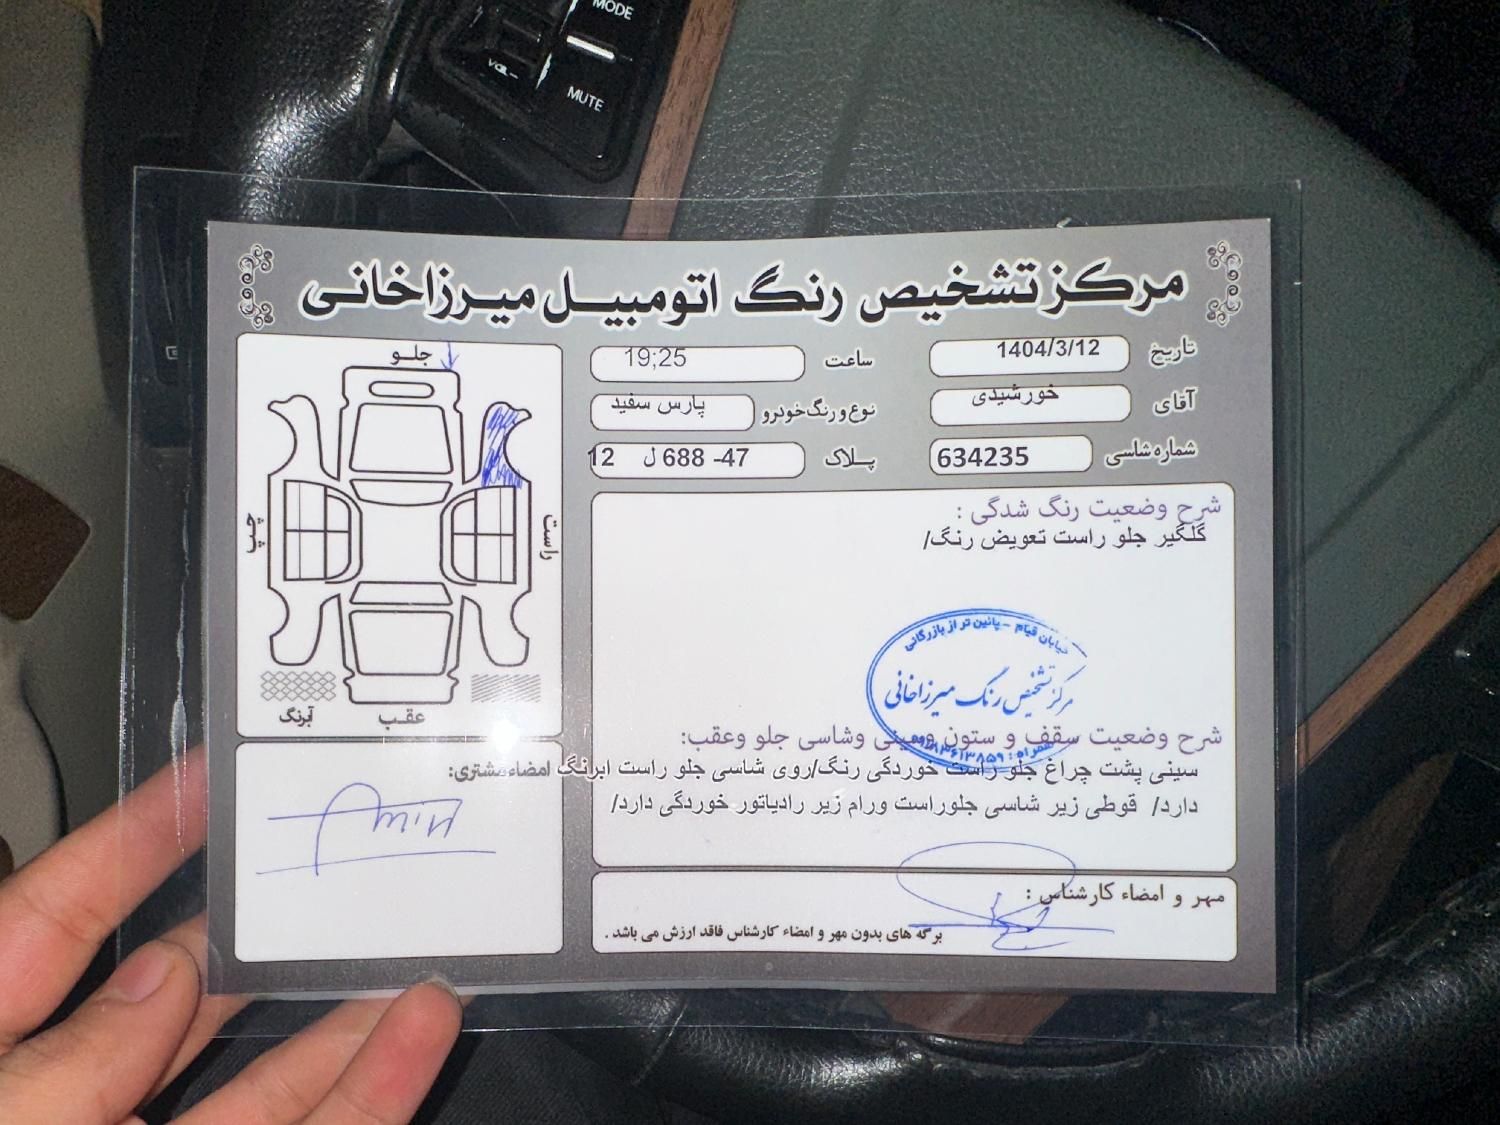 MODE
VOL-
MUTE
مرکز تشخیص رنگ اتومبیل میرزاخانی
تاریخ 1404/3/12
ساعت 19;25
آقای خورشیدی
نوع و رنگ خودرو پارس سفید
شماره شاسی 634235
پلاک 12 ل 688 -47
جلو
چپ
راست
عقب
آبرنگ
رنگ
شرح وضعیت رنگ شدگی :
گلگیر جلو راست تعویض رنگ/
خیابان قیام - پائین تر از بازرگانی
مرکز تشخیص رنگ میرزاخانی
همراه :
شرح وضعیت سقف و ستون وسینی وشاسی جلو وعقب:
سینی پشت چراغ جلو راست خوردگی رنگ/روی شاسی جلو راست ابرنگ
دارد/ قوطی زیر شاسی جلوراست ورام زیر رادیاتور خوردگی دارد/
امضاء مشتری:
Amin
مهر و امضاء کارشناس :
برگه های بدون مهر و امضاء کارشناس فاقد ارزش می باشد .